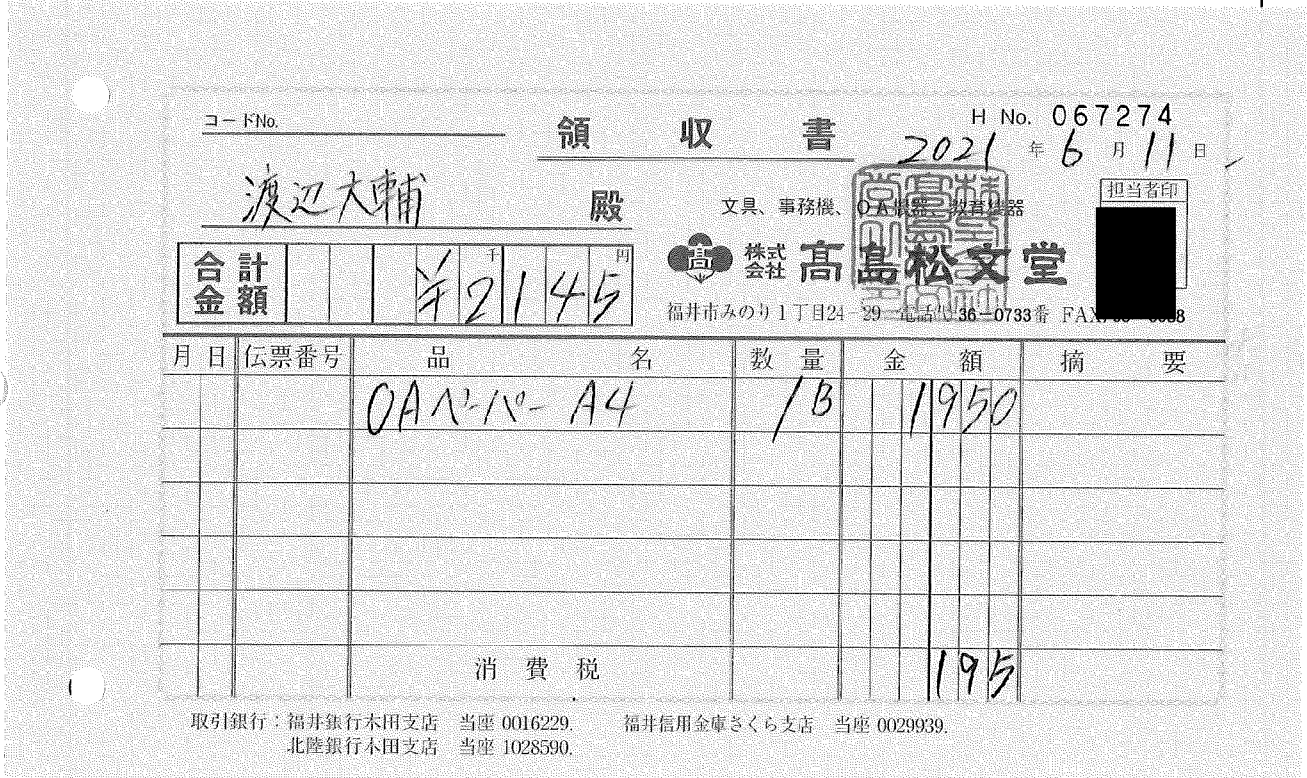 コードNo.
領収書
H No. 067274
2021年6月11日
渡辺大輔 殿
担当者印
文具、事務機、OA機器、教育機器
合計金額 ¥2145
千 円
株式会社 髙島松文堂
福井市みのり1丁目24-29 電話代36-0733番 FAX
月 日 伝票番号 品名 数量 金額 摘要
OAペーパー A4 1B 1950
消費税 195
取引銀行：福井銀行木田支店 当座 0016229. 福井信用金庫さくら支店 当座 0029939.
北陸銀行木田支店 当座 1028590.